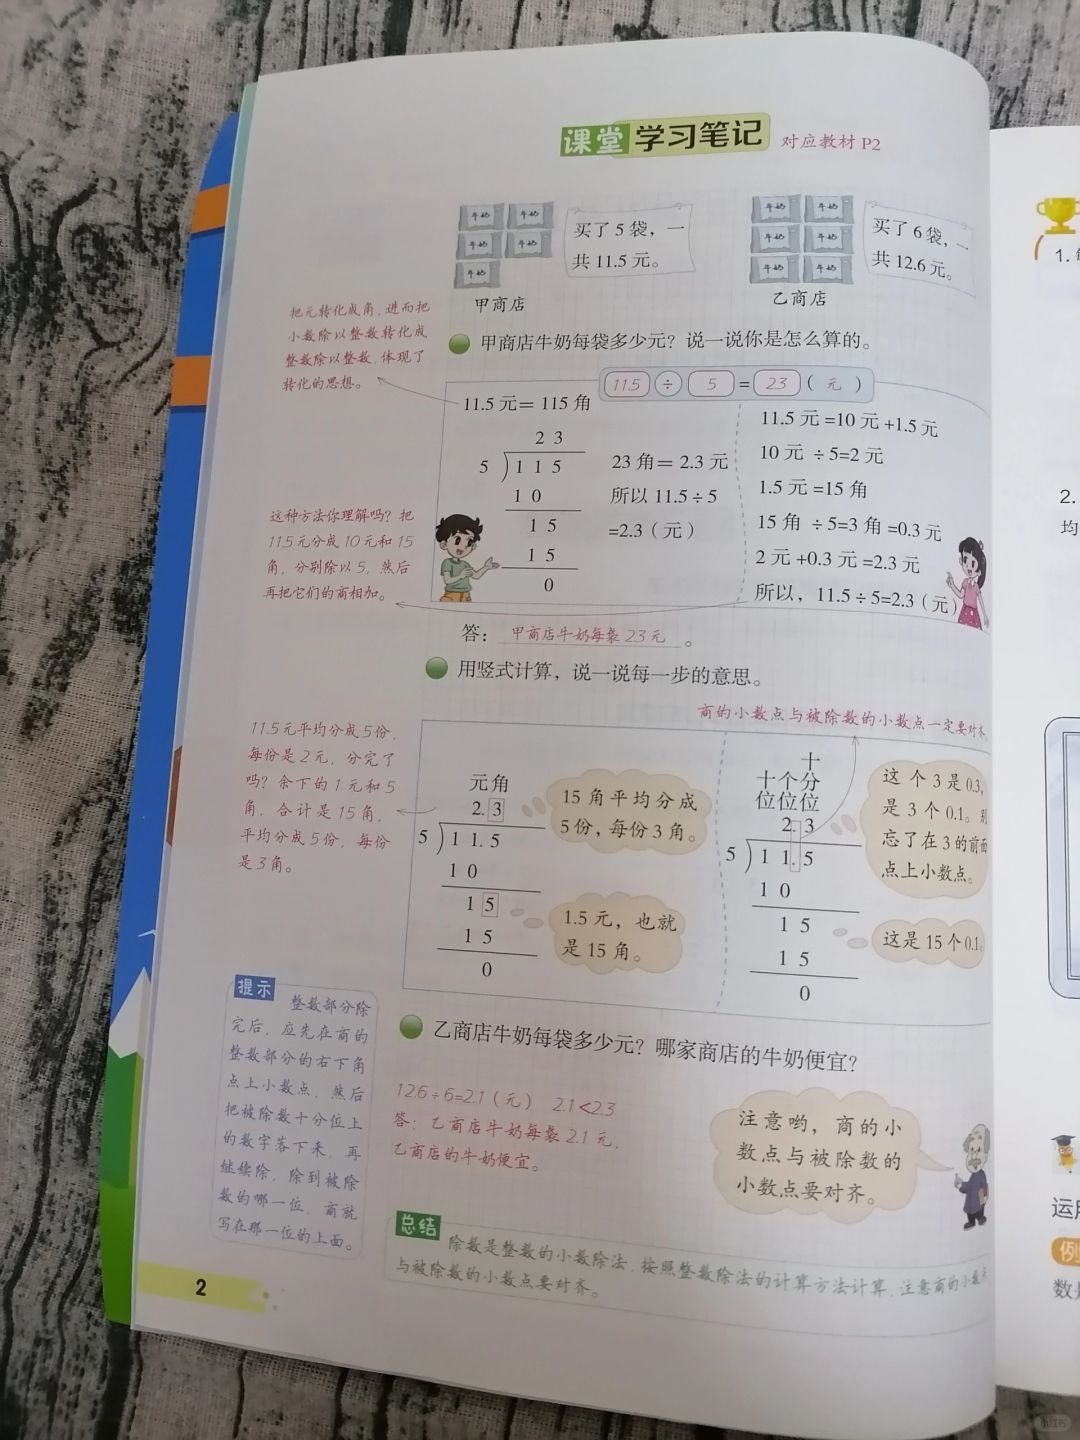 课堂 学习笔记 对应教材 P2
牛奶 牛奶
牛奶 牛奶
牛奶
买了 5 袋，一
共 11.5 元。
甲商店
牛奶 牛奶
牛奶 牛奶
牛奶 牛奶
买了 6 袋，一
共 12.6 元。
乙商店
把元转化成角，进而把
小数除以整数转化成
整数除以整数，体现了
转化的思想。
甲商店牛奶每袋多少元？说一说你是怎么算的。
11.5 ÷ 5 = 2.3 （ 元 ）
11.5 元＝ 115 角
2 3
5 1 1 5
1 0
1 5
1 5
0
23 角＝ 2.3 元
所以 11.5 ÷ 5
=2.3（元）
11.5 元 =10 元 +1.5 元
10 元 ÷ 5=2 元
1.5 元 =15 角
15 角 ÷ 5=3 角 =0.3 元
2 元 +0.3 元 =2.3 元
所以，11.5 ÷ 5=2.3（元）
这种方法你理解吗？把
11.5 元分成 10 元和 15
角，分别除以 5，然后
再把它们的商相加。
答：甲商店牛奶每袋 2.3 元。
用竖式计算，说一说每一步的意思。
商的小数点与被除数的小数点一定要对齐。
11.5 元平均分成 5 份，
每份是 2 元，分完了
吗？余下的 1 元和 5
角，合计是 15 角，
平均分成 5 份，每份
是 3 角。
元角
2. 3
5 1 1. 5
1 0
1 5
1 5
0
15 角平均分成
5 份，每份 3 角。
1.5 元，也就
是 15 角。
十
十个分
位位位
2. 3
5 1 1. 5
1 0
1 5
1 5
0
这个 3 是 0.3，
是 3 个 0.1。别
忘了在 3 的前面
点上小数点。
这是 15 个 0.1。
提示
整数部分除
完后，应先在商的
整数部分的右下角
点上小数点，然后
把被除数十分位上
的数字落下来，再
继续除，除到被除
数的哪一位，商就
写在那一位的上面。
乙商店牛奶每袋多少元？哪家商店的牛奶便宜？
12.6 ÷ 6=2.1（元） 2.1＜2.3
答：乙商店牛奶每袋 2.1 元，
乙商店的牛奶便宜。
注意哟，商的小
数点与被除数的
小数点要对齐。
总结
除数是整数的小数除法，按照整数除法的计算方法计算，注意商的小数点
与被除数的小数点要对齐。
2
1.
2.
均
运用
例
数
小红书